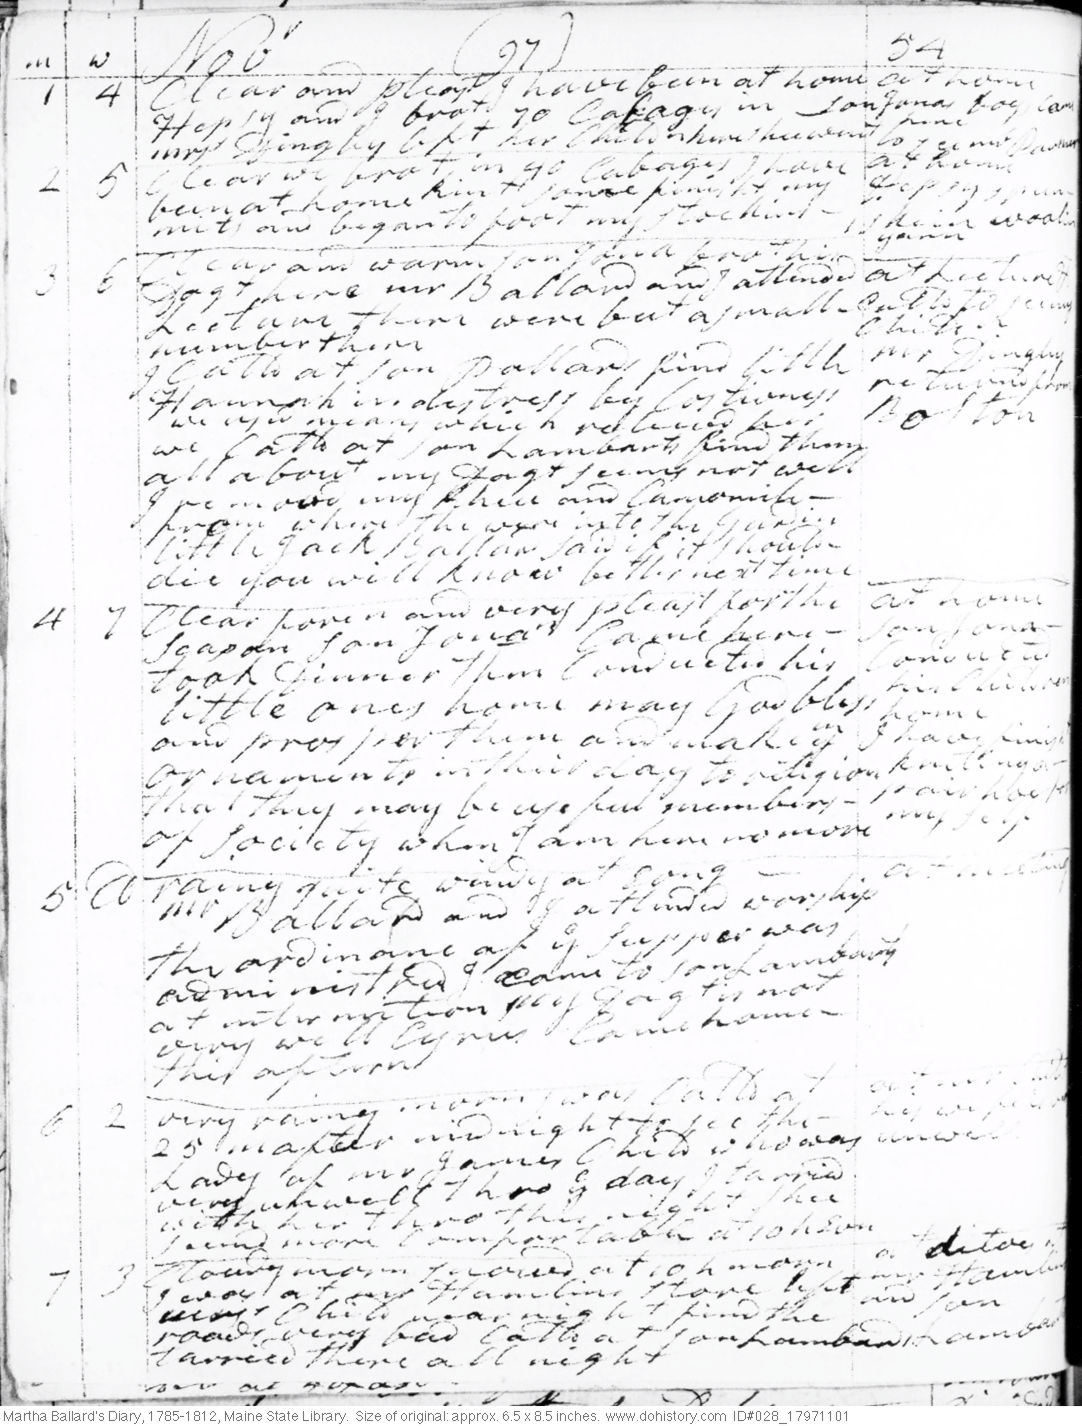 m w Novr (97) 54
1 4 Clear and pleast I have been at home at home
Hepsy and I brot 70 Cabages in son Jonas boys came here
mrs Dingley left her Children here shee went to see mrs
2 5 Clear we brot in 40 Cabages I have at home
been at home knit some finisht my Hepsy spun
mits and began to foot my stockins - skein woolin yarn
3 6 Clear and warm son Jona bro't his
Dagt here mr Ballard and I attended at Lecture
Lecture there were but a small Calld to seeing
number there Childrn
I Calld at son Pollards find little mr Dingley
Hannah in distress by Costivness returnd from
we used means which relievd her Boston
we Calld at son Lambards find them
all about my Dagt seems not well
I removd my and Camomile -
from where the were into the Gardin
little Jack Ballard said if it should
die you will know better next time
4 7 Clear foren and very pleast for the at home
season son Jona Came here - son Jona -
took Dinner then Conducted his Conducted
little ones home may God bless his Children home
and prosper them and make ym I have finisht
ornaments in their day to religion knitting a
that they may be useful members - pair hoes for
of society when I am here no more my self
5 rainy quite windy at Eving - at meeting
mr Ballard and I attended worship
the ordinanc of ye supper was
administred I came to son Lambards
at intermition my Dagt is not
very well Cyrus Came home -
this aftern
6 2 very rainy morn I was Calld at at mr Childs
25 m after midnight to see the his wife
Lady of mr James Child who was unwell
very unwell thro ye day I tarried
with her thro the night shee
seemd more Comfortable at 10 h Evn
7 3 Cloudy morn snowd at 10 h morn at ditoes
I was at mr Hamlins store left mr Hamlins
mrs Child near night find the and son
roads very bad Calld at son Lambards Lambards
tarried there all night
Martha Ballard's Diary, 1785-1812, Maine State Library. Size of original: approx. 6.5 x 8.5 inches. www.dohistory.com ID#028_17971101